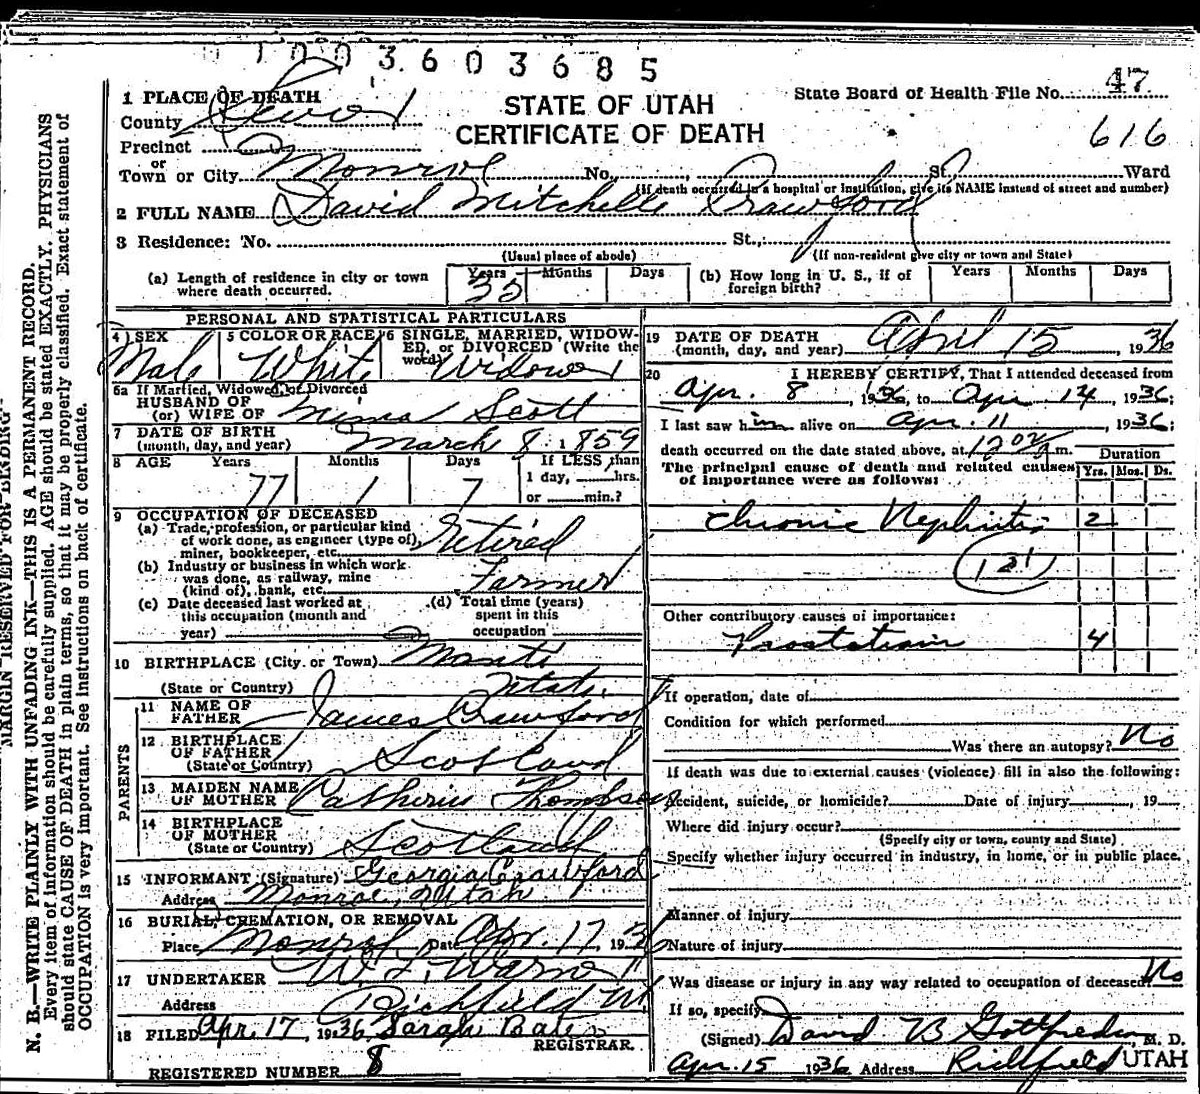 1003603685
1 PLACE OF DEATH
County Sevier
STATE OF UTAH
CERTIFICATE OF DEATH
State Board of Health File No. 47
616
Precinct
or
Town or City Monroe No. St. Ward
(If death occurred in a hospital or institution, give its NAME instead of street and number)
2 FULL NAME David Mitchelle Crawford
3 Residence: No. St.,
(Usual place of abode) (If non-resident give city or town and State)
(a) Length of residence in city or town where death occurred. Years 35 Months Days
(b) How long in U. S., if of foreign birth? Years Months Days
PERSONAL AND STATISTICAL PARTICULARS
4 SEX Male
5 COLOR OR RACE White
6 SINGLE, MARRIED, WIDOWED, or DIVORCED (Write the word) Widower
6a If Married, Widowed, or Divorced
HUSBAND OF
(or) WIFE OF Mima Scott
7 DATE OF BIRTH
(month, day, and year) March 8 1859
8 AGE Years 77 Months 1 Days 7 If LESS than
1 day, hrs.
or min.?
9 OCCUPATION OF DECEASED
(a) Trade, profession, or particular kind
of work done, as engineer (type of),
miner, bookkeeper, etc. Retired
(b) Industry or business in which work
was done, as railway, mine
(kind of), bank, etc. Farmer
(c) Date deceased last worked at
this occupation (month and
year)
(d) Total time (years)
spent in this
occupation
10 BIRTHPLACE (City or Town) Manti
(State or Country) Utah.
PARENTS
11 NAME OF
FATHER James Crawford
12 BIRTHPLACE
OF FATHER
(State or Country) Scotland
13 MAIDEN NAME
OF MOTHER Catherine Thompson
14 BIRTHPLACE
OF MOTHER
(State or Country) Scotland
15 INFORMANT (Signature) Georgia Crawford
Address Monroe, Utah
16 BURIAL, CREMATION, OR REMOVAL
Place Monroe Date Apr. 17, 1936
17 UNDERTAKER W. L. Warner
Address Richfield Ut
18 FILED Apr. 17, 1936 Sarah Bate
REGISTRAR.
REGISTERED NUMBER 8
19 DATE OF DEATH
(month, day, and year) April 15, 1936
20 I HEREBY CERTIFY, That I attended deceased from
Apr. 8, 1936, to Apr 14, 1936;
I last saw him alive on Apr. 11, 1936;
death occurred on the date stated above, at m.
The principal cause of death and related causes
of importance were as follows:
Duration
Yrs. Mos. Ds.
Chronic Nephritis 2
131
Other contributory causes of importance:
4
If operation, date of
Condition for which performed
Was there an autopsy? No
If death was due to external causes (violence) fill in also the following:
Accident, suicide, or homicide? Date of injury , 19
Where did injury occur?
(Specify city or town, county and State)
Specify whether injury occurred in industry, in home, or in public place.
Manner of injury
Nature of injury
Was disease or injury in any way related to occupation of deceased? No
If so, specify
(Signed) David B Gottfredson, M. D.
Apr. 15 1936 Address Richfield UTAH
MARGIN RESERVED FOR BINDING
N. B.—WRITE PLAINLY WITH UNFADING INK—THIS IS A PERMANENT RECORD.
Every item of information should be carefully supplied. AGE should be stated EXACTLY. PHYSICIANS
should state CAUSE OF DEATH in plain terms, so that it may be properly classified. Exact statement of
OCCUPATION is very important. See instructions on back of certificate.